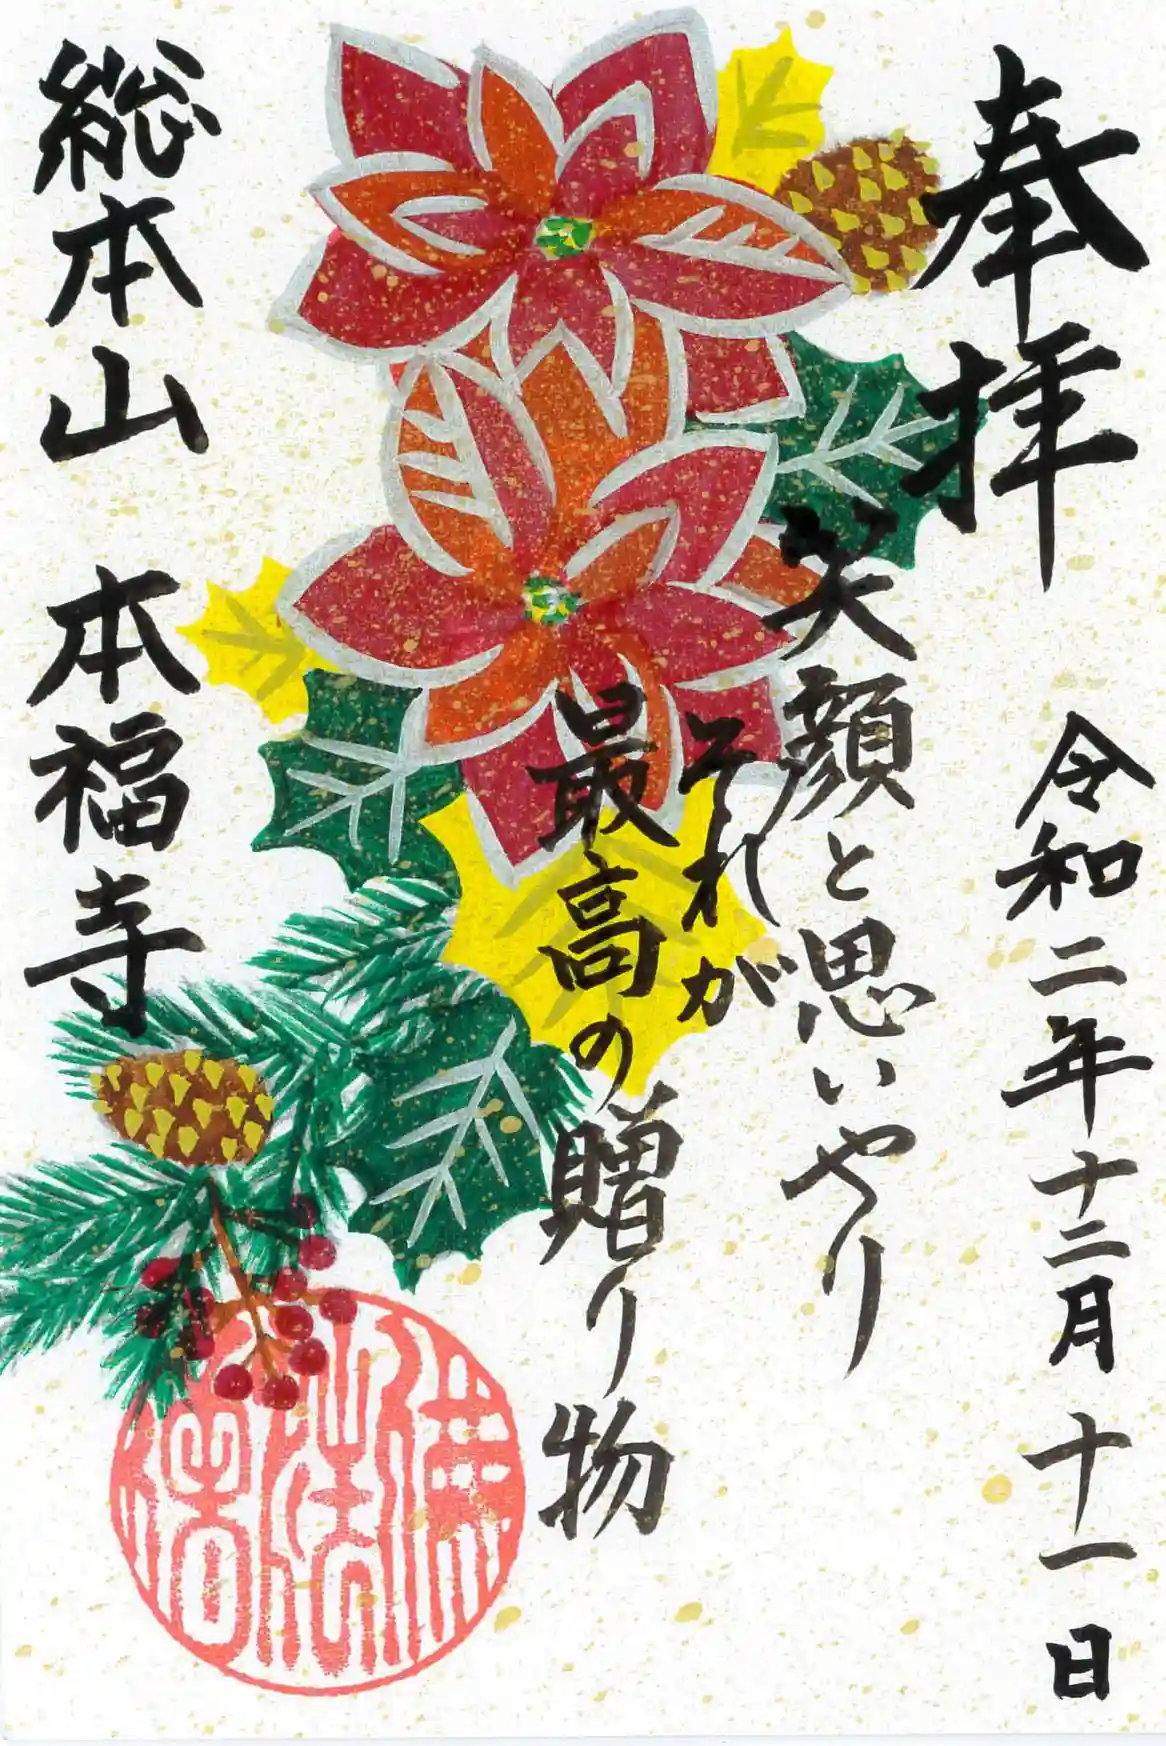 奉拝
令和二年十二月十一日
笑顔と思いやり
それが
最高の贈り物
総本山 本福寺